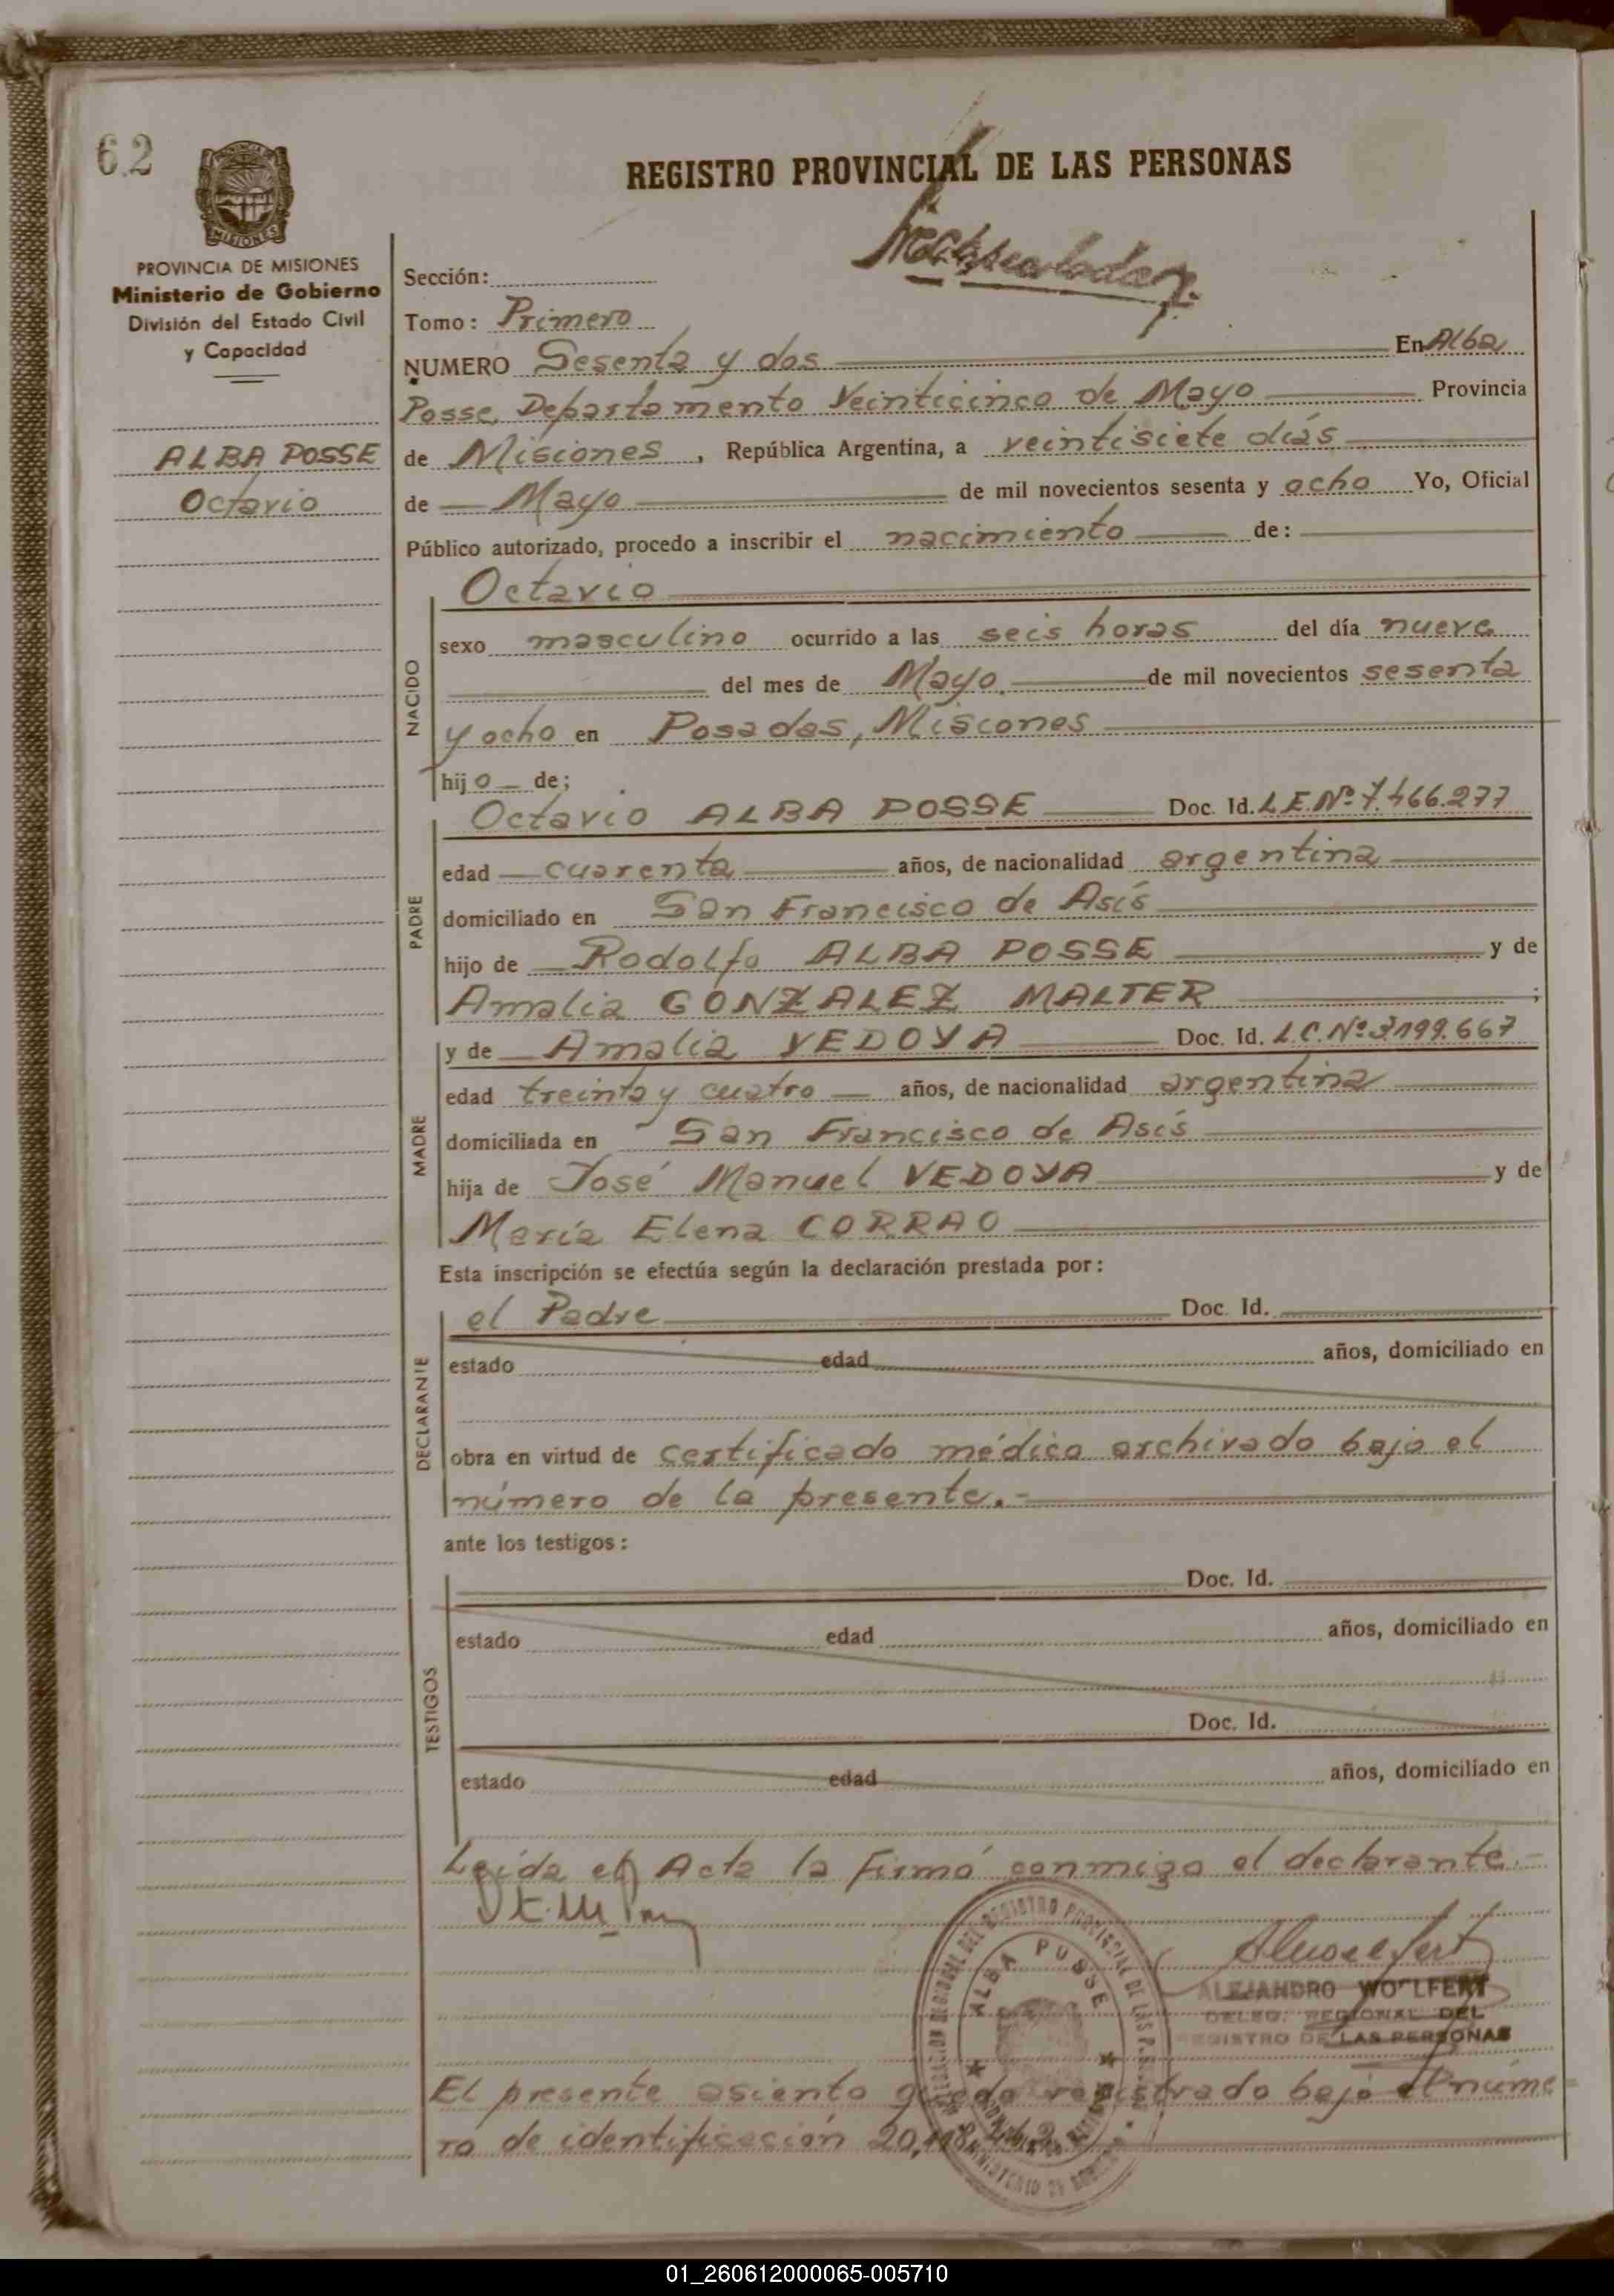 62
REGISTRO PROVINCIAL DE LAS PERSONAS
PROVINCIA DE MISIONES
Ministerio de Gobierno
División del Estado Civil
y Capacidad
ALBA POSSE
Octavio
Sección:
Tomo: Primero
NUMERO Sesenta y dos En Alba
Posse, Departamento Veinticinco de Mayo Provincia
de Misiones, República Argentina, a veintisiete días
de Mayo de mil novecientos sesenta y ocho Yo, Oficial
Público autorizado, procedo a inscribir el nacimiento de:
NACIDO
Octavio
sexo masculino ocurrido a las seis horas del día nueve
del mes de Mayo de mil novecientos sesenta
y ocho en Posadas, Misiones
hijo de;
PADRE
Octavio ALBA POSSE Doc. Id. L.E.Nº 7.466.277
edad cuarenta años, de nacionalidad argentina
domiciliado en San Francisco de Asís
hijo de Rodolfo ALBA POSSE y de
Amalia GONZALEZ MALTER ;
MADRE
y de Amalia VEDOYA Doc. Id. L.C.Nº 3.199.667
edad treinta y cuatro años, de nacionalidad argentina
domiciliada en San Francisco de Asís
hija de José Manuel VEDOYA y de
María Elena CORRAO
Esta inscripción se efectúa según la declaración prestada por:
DECLARANTE
el Padre Doc. Id.
estado edad años, domiciliado en
obra en virtud de certificado médico archivado bajo el
número de la presente.-
ante los testigos:
TESTIGOS
Doc. Id.
estado edad años, domiciliado en
Doc. Id.
estado edad años, domiciliado en
Leída el Acta la firmó conmigo el declarante.-
ALBA POSSE
ALEJANDRO WOLFERT
DELEG. REGIONAL DEL
REGISTRO DE LAS PERSONAS
El presente asiento queda registrado bajo el núme
ro de identificación
01_260612000065-005710